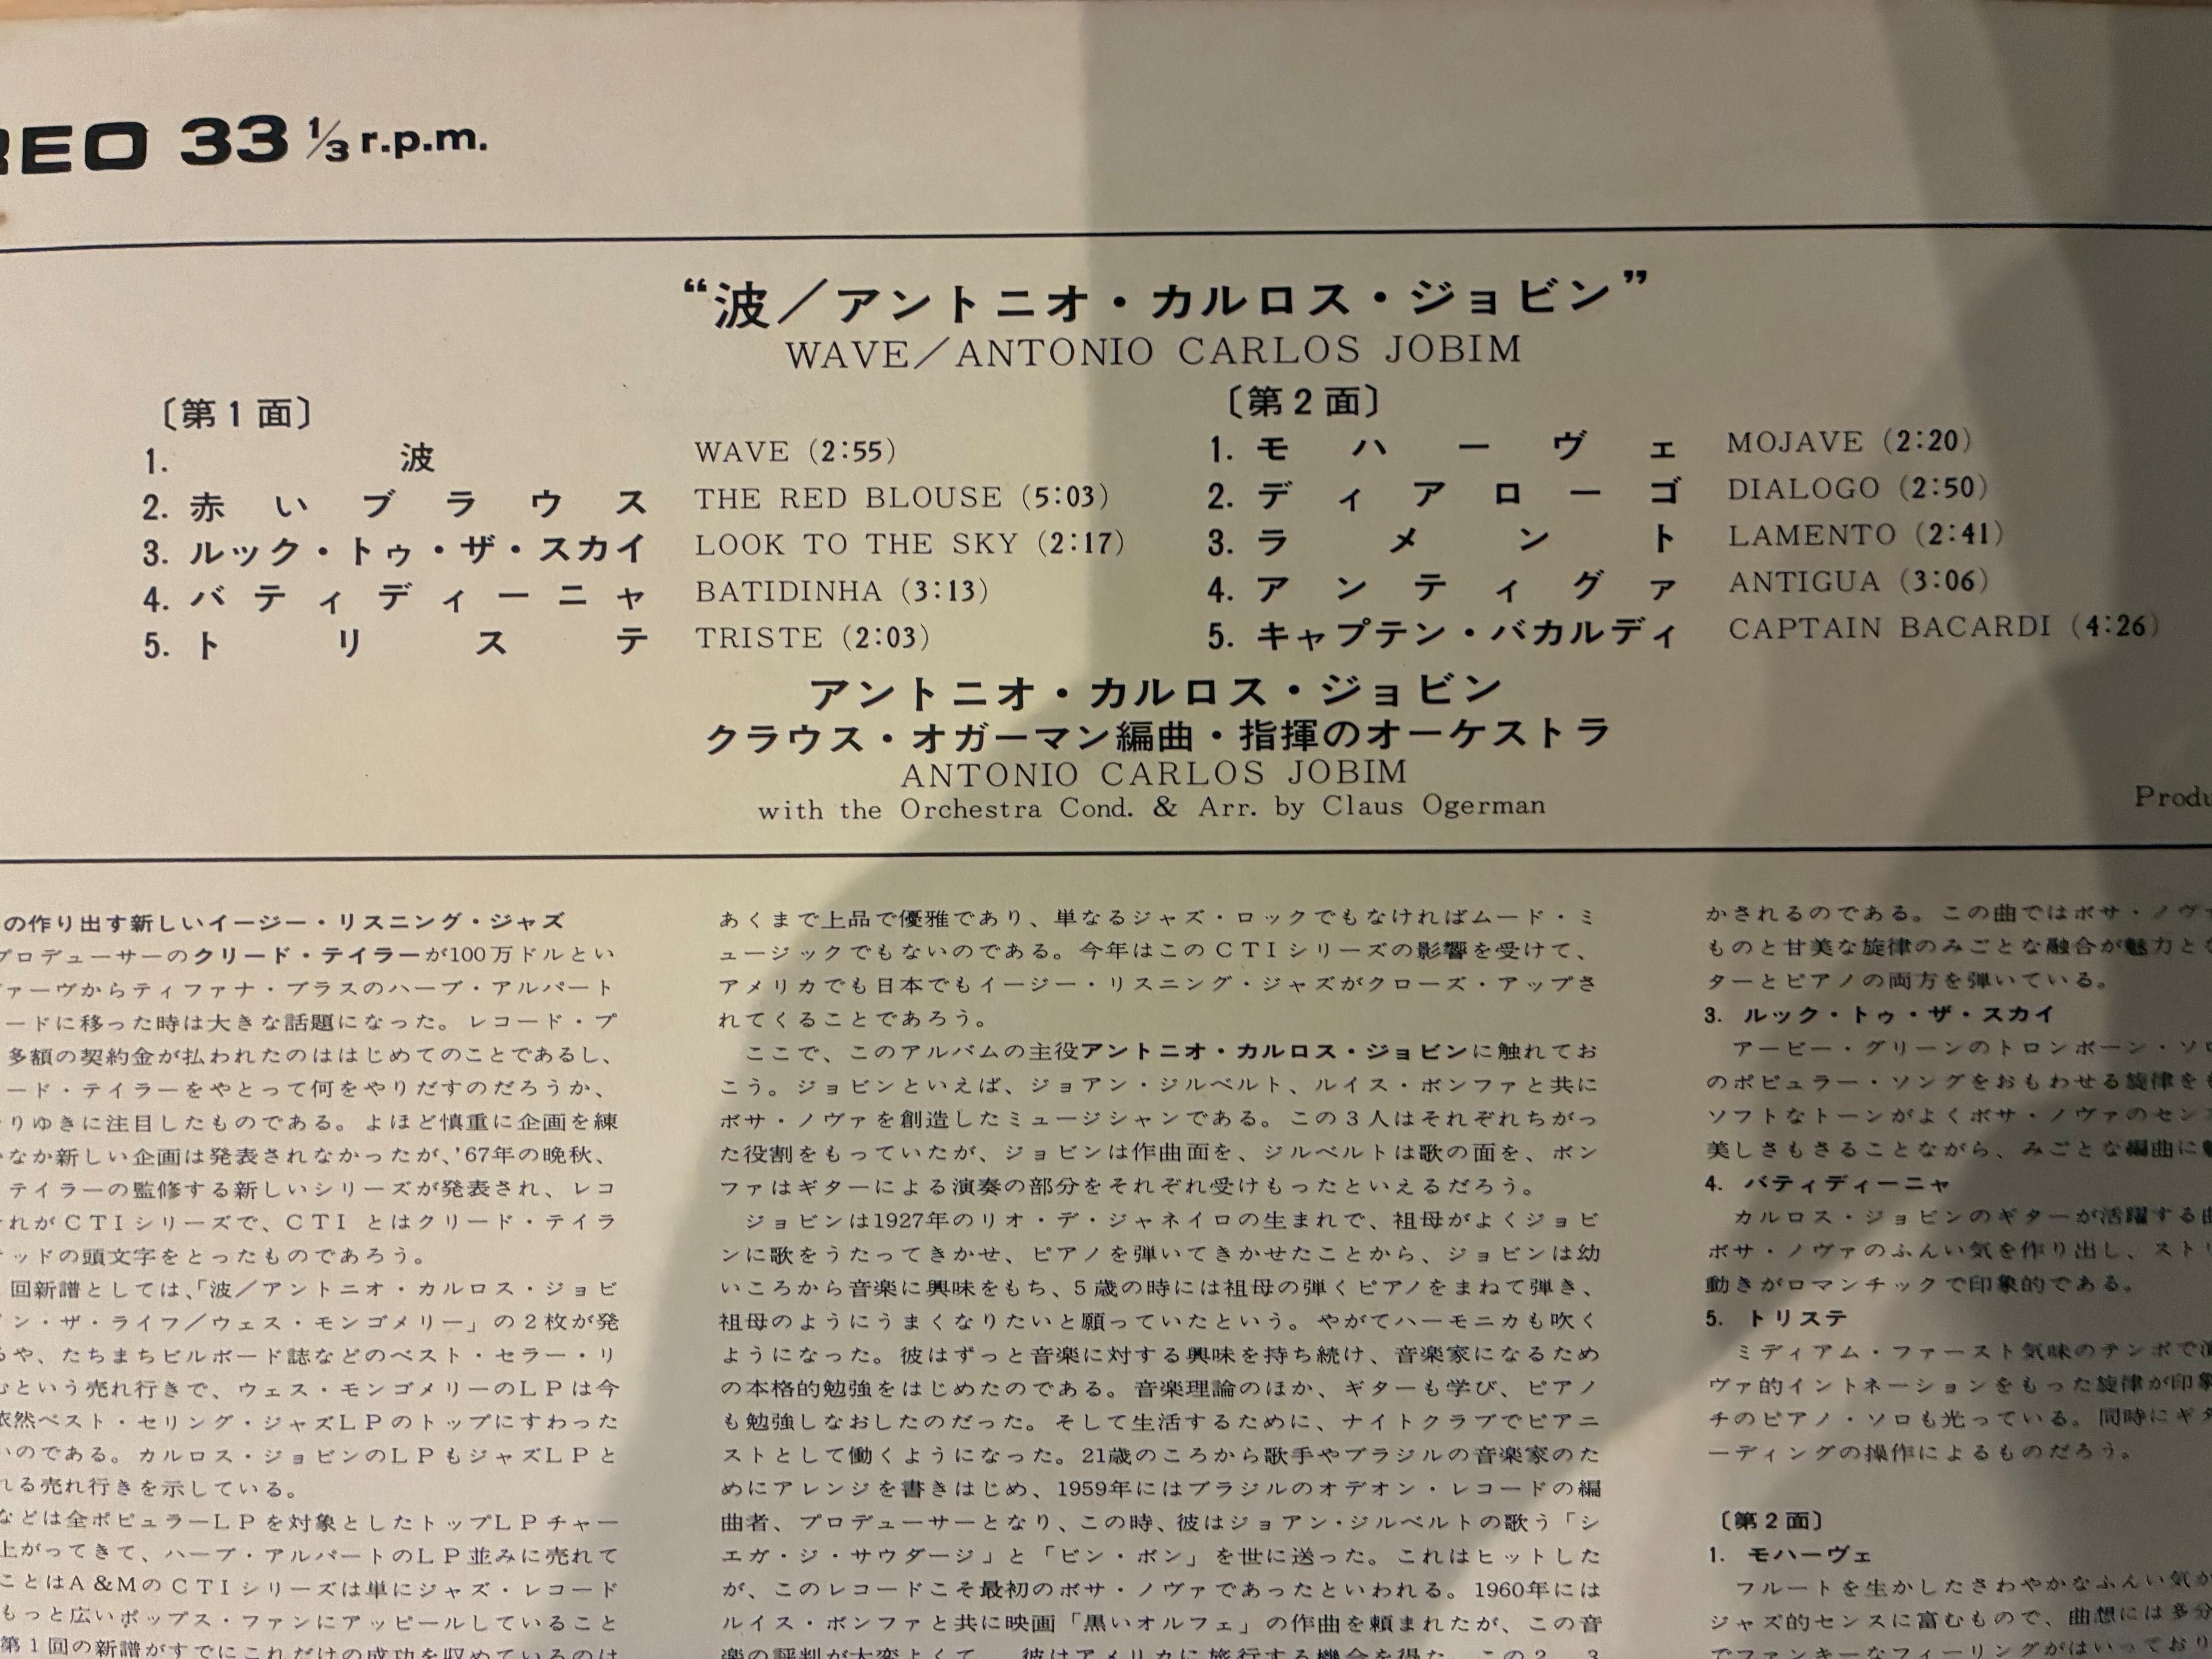 REO 33 1/3 r.p.m.
“波／アントニオ・カルロス・ジョビン”
WAVE／ANTONIO CARLOS JOBIM
〔第1面〕
1. 波 WAVE (2:55)
2. 赤いブラウス THE RED BLOUSE (5:03)
3. ルック・トゥ・ザ・スカイ LOOK TO THE SKY (2:17)
4. バティディーニャ BATIDINHA (3:13)
5. トリステ TRISTE (2:03)
〔第2面〕
1. モハーヴェ MOJAVE (2:20)
2. ディアローゴ DIALOGO (2:50)
3. ラメント LAMENTO (2:41)
4. アンティグァ ANTIGUA (3:06)
5. キャプテン・バカルディ CAPTAIN BACARDI (4:26)
アントニオ・カルロス・ジョビン
クラウス・オガーマン編曲・指揮のオーケストラ
ANTONIO CARLOS JOBIM
with the Orchestra Cond. & Arr. by Claus Ogerman
Produ
の作り出す新しいイージー・リスニング・ジャズ
プロデューサーのクリード・テイラーが100万ドルとい
ヴァーヴからティファナ・ブラスのハーブ・アルパート
ードに移った時は大きな話題になった。レコード・プ
多額の契約金が払われたのははじめてのことであるし、
ード・テイラーをやとって何をやりだすのだろうか、
りゆきに注目したものである。よほど慎重に企画を練
なか新しい企画は発表されなかったが、'67年の晩秋、
テイラーの監修する新しいシリーズが発表され、レコ
れがCTIシリーズで、CTI とはクリード・テイラ
ッドの頭文字をとったものであろう。
回新譜としては、「波／アントニオ・カルロス・ジョビ
ン・ザ・ライフ／ウェス・モンゴメリー」の2枚が発
や、たちまちビルボード誌などのベスト・セラー・リ
という売れ行きで、ウェス・モンゴメリーのLPは今
依然ベスト・セリング・ジャズLPのトップにすわった
いのである。カルロス・ジョビンのLPもジャズLPと
れる売れ行きを示している。
などは全ポピュラーLPを対象としたトップLPチャー
上がってきて、ハーブ・アルパートのLP並みに売れて
ことはA&MのCTIシリーズは単にジャズ・レコード
もっと広いポップス・ファンにアッピールしていること
第1回の新譜がすでにこれだけの成功を収めているのは
あくまで上品で優雅であり、単なるジャズ・ロックでもなければムード・ミ
ュージックでもないのである。今年はこのCTIシリーズの影響を受けて、
アメリカでも日本でもイージー・リスニング・ジャズがクローズ・アップさ
れてくることであろう。
ここで、このアルバムの主役アントニオ・カルロス・ジョビンに触れてお
こう。ジョビンといえば、ジョアン・ジルベルト、ルイス・ボンファと共に
ボサ・ノヴァを創造したミュージシャンである。この3人はそれぞれちがっ
た役割をもっていたが、ジョビンは作曲面を、ジルベルトは歌の面を、ボン
ファはギターによる演奏の部分をそれぞれ受けもったといえるだろう。
ジョビンは1927年のリオ・デ・ジャネイロの生まれで、祖母がよくジョビ
ンに歌をうたってきかせ、ピアノを弾いてきかせたことから、ジョビンは幼
いころから音楽に興味をもち、5歳の時には祖母の弾くピアノをまねて弾き、
祖母のようにうまくなりたいと願っていたという。やがてハーモニカも吹く
ようになった。彼はずっと音楽に対する興味を持ち続け、音楽家になるため
の本格的勉強をはじめたのである。音楽理論のほか、ギターも学び、ピアノ
も勉強しなおしたのだった。そして生活するために、ナイトクラブでピアニ
ストとして働くようになった。21歳のころから歌手やブラジルの音楽家のた
めにアレンジを書きはじめ、1959年にはブラジルのオデオン・レコードの編
曲者、プロデューサーとなり、この時、彼はジョアン・ジルベルトの歌う「シ
エガ・ジ・サウダージ」と「ビン・ボン」を世に送った。これはヒットした
が、このレコードこそ最初のボサ・ノヴァであったといわれる。1960年には
ルイス・ボンファと共に映画「黒いオルフェ」の作曲を頼まれたが、この音
楽の評判が大変よくて、彼はアメリカに旅行する機会を得た。この2、3
かされるのである。この曲ではボサ・ノヴァ
ものと甘美な旋律のみごとな融合が魅力とな
ターとピアノの両方を弾いている。
3. ルック・トゥ・ザ・スカイ
アービー・グリーンのトロンボーン・ソロ
のポピュラー・ソングをおもわせる旋律をも
ソフトなトーンがよくボサ・ノヴァのセンス
美しさもさることながら、みごとな編曲に魅
4. バティディーニャ
カルロス・ジョビンのギターが活躍する曲
ボサ・ノヴァのふんい気を作り出し、ストリ
動きがロマンチックで印象的である。
5. トリステ
ミディアム・ファースト気味のテンポで演
ヴァ的イントネーションをもった旋律が印象
チのピアノ・ソロも光っている。同時にギタ
ーディングの操作によるものだろう。
〔第2面〕
1. モハーヴェ
フルートを生かしたさわやかなふんい気が
ジャズ的センスに富むもので、曲想には多分
でファンキーなフィーリングがはいっており